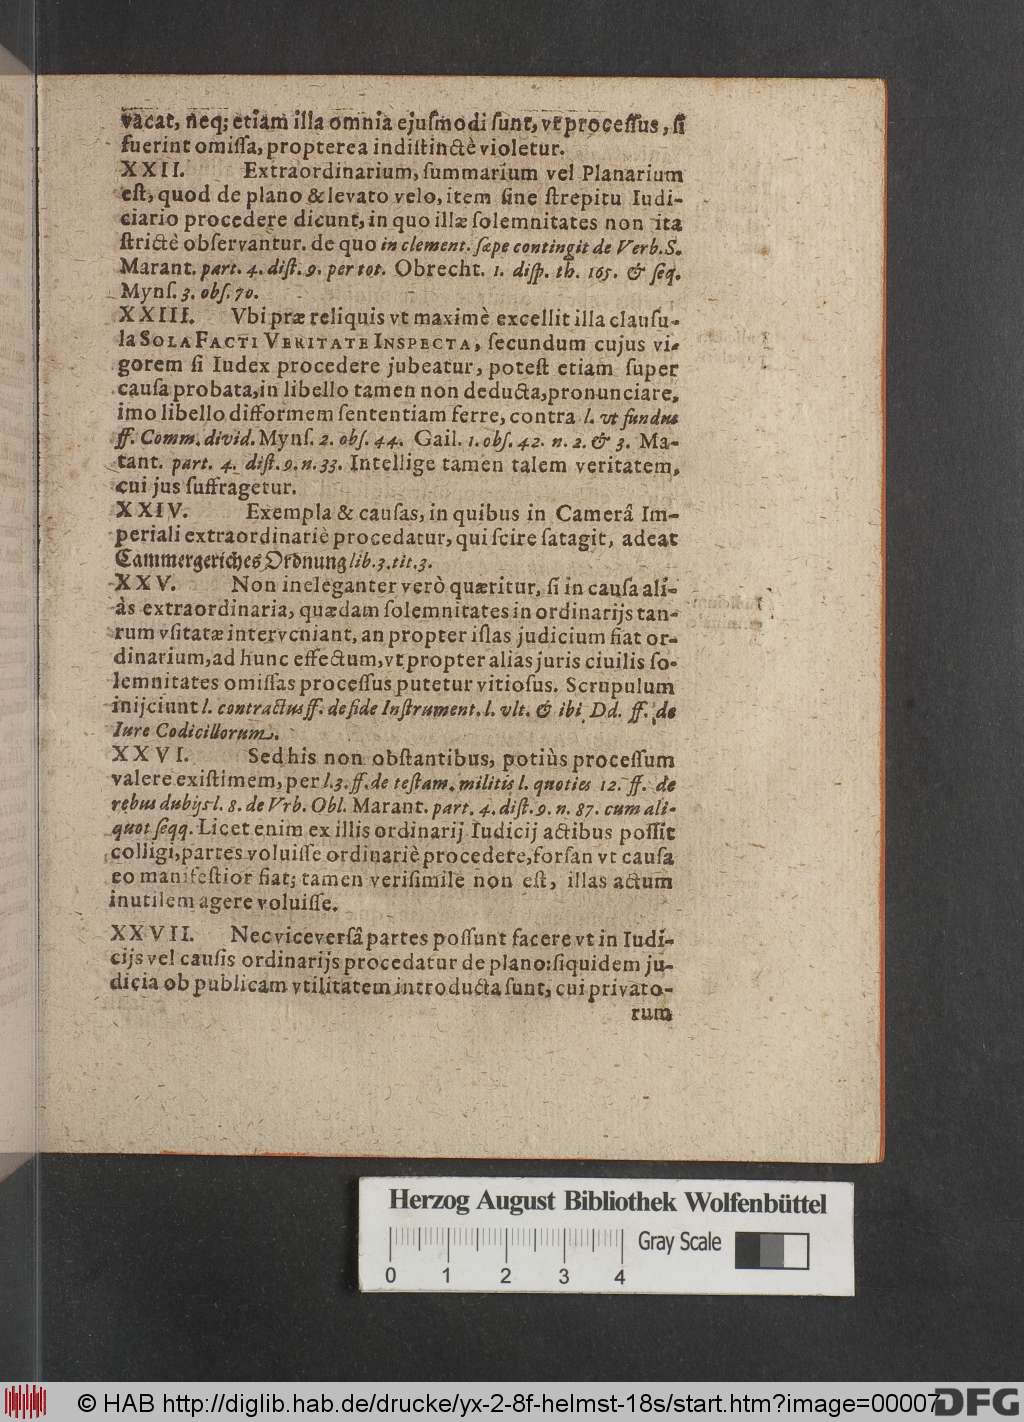 vacat, neq; etiam illa omnia ejuſmodi ſunt, vt proceſſus, ſi
fuerint omiſſa, propterea indiſtinctè violetur.
XXII. Extraordinarium, ſummarium vel Planarium
eſt, quod de plano & levato velo, item ſine ſtrepitu Iudi-
ciario procedere dicunt, in quo illæ ſolemnitates non ita
ſtrictè obſervantur. de quo in clement. ſæpe contingit de Verb. S.
Marant. part. 4. diſt. 9. per tot. Obrecht. 1. diſp. th. 165. & ſeq.
Mynſ. 3. obſ. 70.
XXIII. Vbi præ reliquis vt maximè excellit illa clauſu-
la SOLA FACTI VERITATE INSPECTA, ſecundum cujus vi-
gorem ſi Iudex procedere jubeatur, poteſt etiam ſuper
cauſa probata, in libello tamen non deducta, pronunciare,
imo libello difformem ſententiam ferre, contra l. vt fundus
ff. Comm. divid. Mynſ. 2. obſ. 44. Gail. 1. obſ. 42. n. 2. & 3. Ma-
tant. part. 4. diſt. 9. n. 33. Intellige tamen talem veritatem,
cui jus ſuffragetur.
XXIV. Exempla & cauſas, in quibus in Camerâ Im-
periali extraordinariè procedatur, qui ſcire ſatagit, adeat
Cammergeriches Ordnung lib. 3. tit. 3.
XXV. Non ineleganter verò quæritur, ſi in cauſa ali-
às extraordinaria, quædam ſolemnitates in ordinarijs tan-
rum vſitatæ interveniant, an propter iſlas judicium fiat or-
dinarium, ad hunc effectum, vt propter alias juris ciuilis ſo-
lemnitates omiſſas proceſſus putetur vitioſus. Scrupulum
inijciunt l. contractus ff. de fide Inſtrument. l. vlt. & ibi Dd. ff. de
Iure Codicillorum.
XXVI. Sed his non obſtantibus, potiùs proceſſum
valere exiſtimem, per l. 3. ff. de teſtam. militis l. quoties 12. ff. de
rebus dubijs l. 8. de Vrb. Obl. Marant. part. 4. diſt. 9. n. 87. cum ali-
quot ſeqq. Licet enim ex illis ordinarij Iudicij actibus poſſit
colligi, partes voluiſſe ordinariè procedere, forſan vt cauſa
eo manifeſtior fiat; tamen veriſimile non eſt, illas actum
inutilem agere voluiſſe.
XXVII. Nec viceverſâ partes poſſunt facere vt in Iudi-
cijs vel cauſis ordinarijs procedatur de plano: ſiquidem ju-
dicia ob publicam vtilitatem introducta ſunt, cui privato-
rum
Herzog August Bibliothek Wolfenbüttel
Gray Scale
0 1 2 3 4
© HAB http://diglib.hab.de/drucke/yx-2-8f-helmst-18s/start.htm?image=00007
DFG